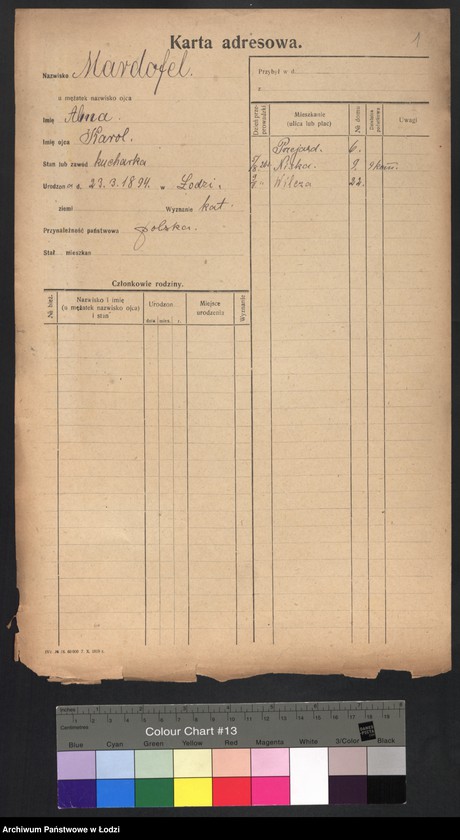 Karta adresowa.
1
Nazwisko Mardofel.
u mężatek nazwisko ojca
Imię Alma.
Imię ojca Karol.
Stan lub zawód kucharka
Urodzon a d. 23. 3. 1894. w Łodzi.
ziemi Wyznanie kat.
Przynależność państwowa polska.
Stał. mieszkan
Członkowie rodziny.
№ bież.
Nazwisko i imię (u mężatek nazwisko ojca) i stan
Urodzon
dnia mies. r.
Miejsce urodzenia
Wyznanie
Przybył w d.
z
Dzień przeprowadzki
Mieszkanie (ulica lub plac)
№ domu
Uwagi
Przejazd. 6.
9.
Wilcza 22.
Archiwum Państwowe w Łodzi
Inches
Centimetres
Colour Chart #13
Blue Cyan Green Yellow Red Magenta White 3/Color Black